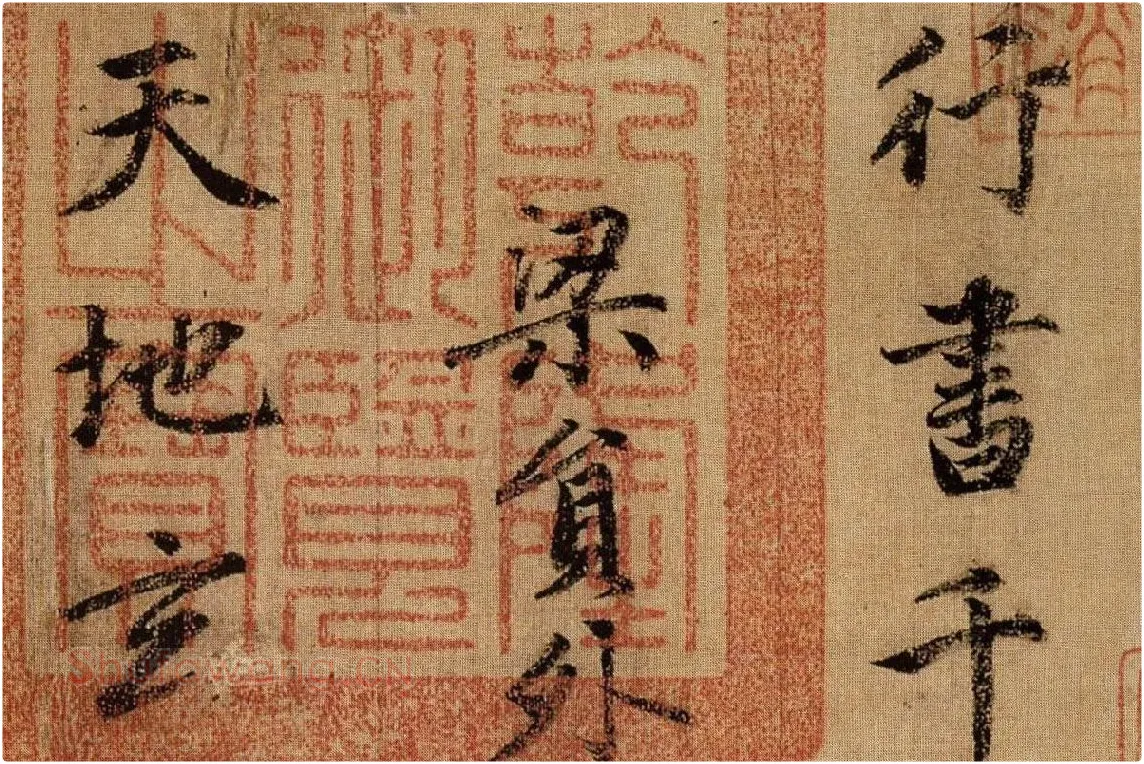 行書千
梁員外
天地玄
乾隆
御覽
之寶